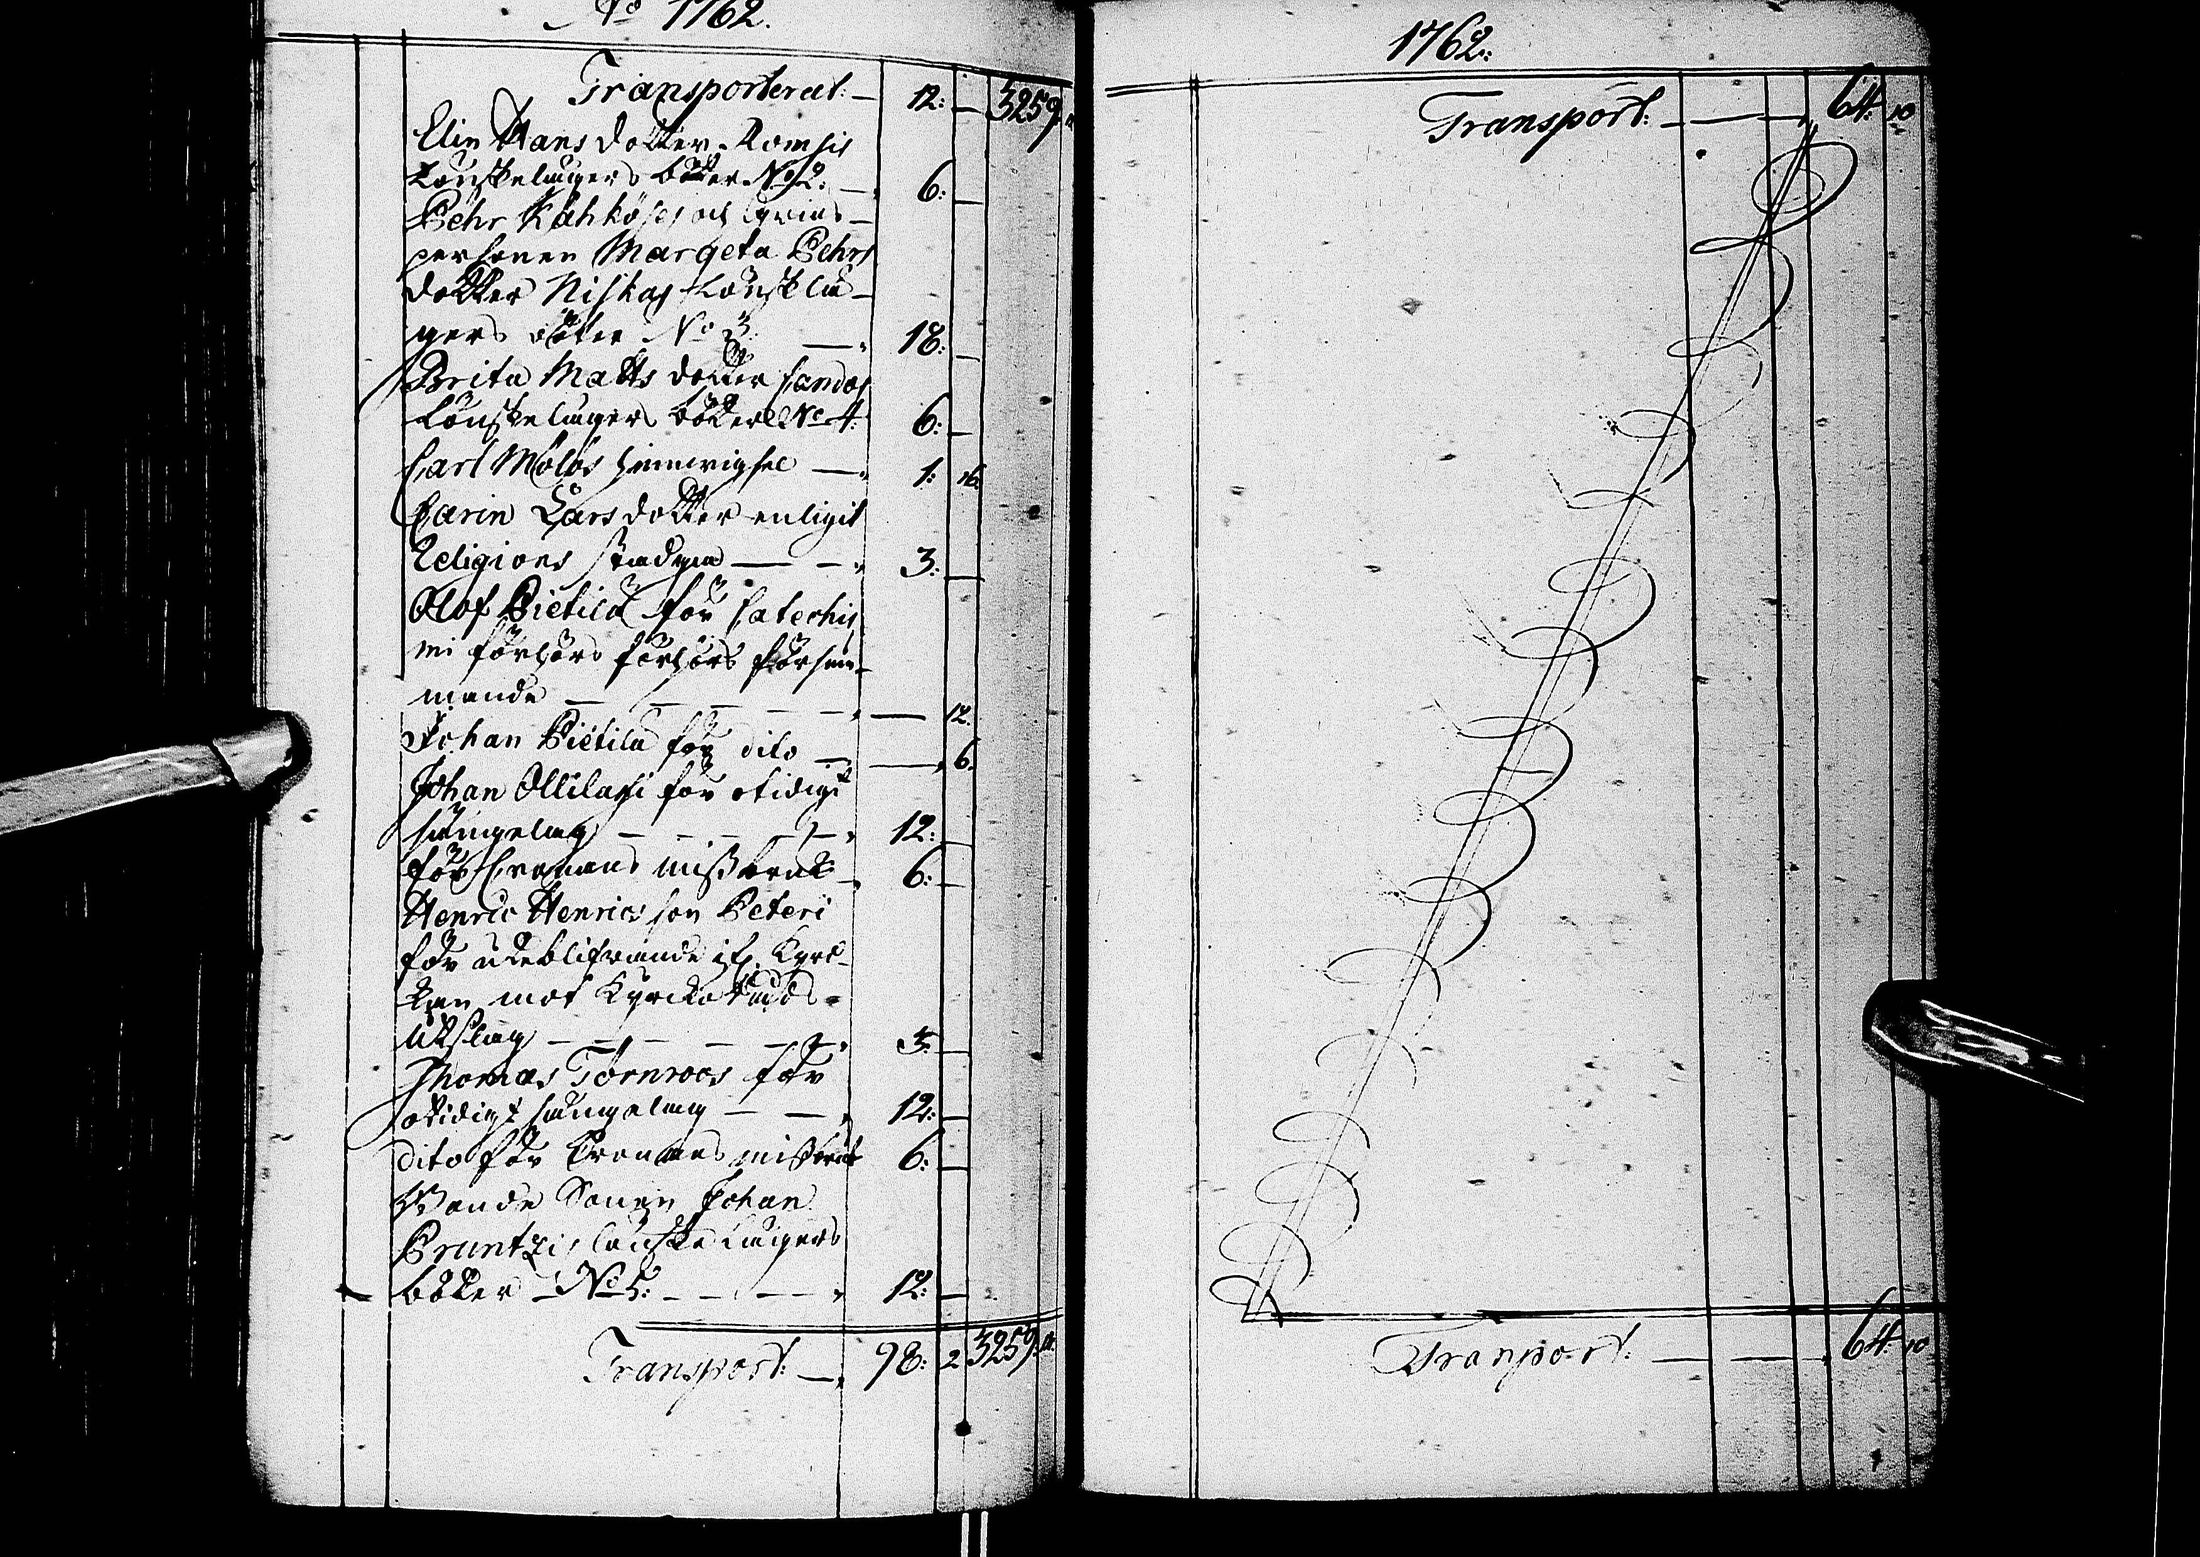 No 1762.
Transporterat: — 12: — 3259
Elin Hans dotter Komsis
Lönskelägers böter No 2: — 6: —
Pehr Kähköses och qvins-
personen Margeta Pehrs
dotter Niskas Lönsklä-
gers böter No 3 — 18: —
Brita Matts dotter
Lönskelägers böter No 4: 6: —
Carl Molös hemvigsel — 1: 16.
Carin Lars dotter enligit
Religions stadgan — — 3: —
Olof Pietilä för Catechis
mi förhörs förhörs försum-
mande — — — — 12.
Johan Pietilä för dito — — 6.
Johan Ollilas för otidigt
sängelag — — — — 12: —
för Cronans missbruk 6: —
Henric Henrics son Peteri
för uteblifvande Kyrc-
kan mot Kyrcko Råds-
Utslag — — — — 3: —
Thomas Törnroos för
otidigt sängelag — — 12: —
dito för Cronans missbruk 6: —
Bonde Sonen Johan
Pruntzis Lönske Lägers
böter — No 5: — — — 12: —
Transport: — 98: 2 3259:
1762:
Transport: — — 64: 10
Tranport: — — 64: 10